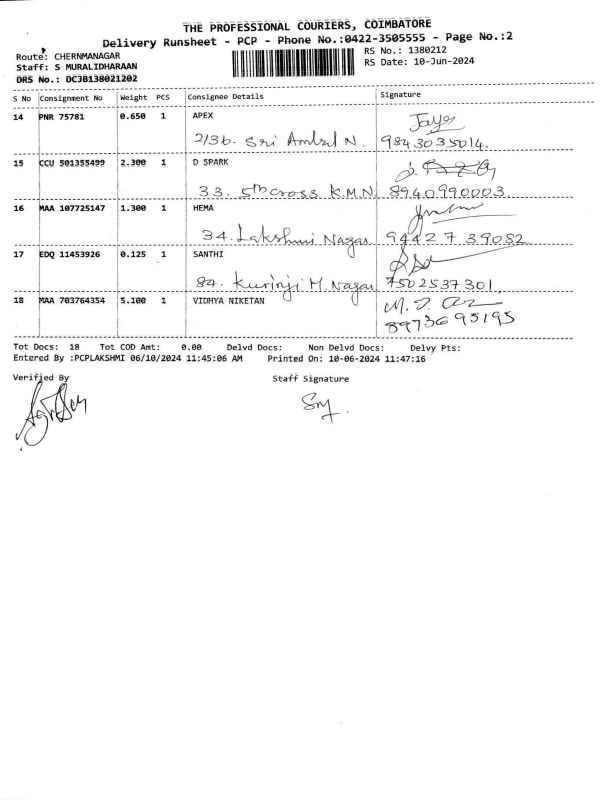 THE PROFESSIONAL COURIERS, COIMBATORE
Delivery Runsheet - PCP - Phone No.:0422-3505555 - Page No.:2
Route: CHERNMANAGAR RS No.: 1380212
Staff: S MURALIDHARAAN RS Date: 10-Jun-2024
DRS No.: DCJB138021202
S No Consignment No Weight PCS Consignee Details Signature
14 PNR 75781 0.650 1 APEX Jaya
2/3b. Sri Ambal N. 9843035014.
15 CCU 501355499 2.300 1 D SPARK
33. 5th cross K.M.N. 8940990003
16 MAA 107725147 1.300 1 HEMA
34. Lakshmi Nagar 94427 39082
17 EDQ 11453926 0.125 1 SANTHI
84. Kurinji M. Nagar 7502537301.
18 MAA 703764354 5.100 1 VIDHYA NIKETAN
8973695195
Tot Docs: 18 Tot COD Amt: 0.00 Delvd Docs: Non Delvd Docs: Delvy Pts:
Entered By :PCPLAKSHMI 06/10/2024 11:45:06 AM Printed On: 10-06-2024 11:47:16
Verified By Staff Signature